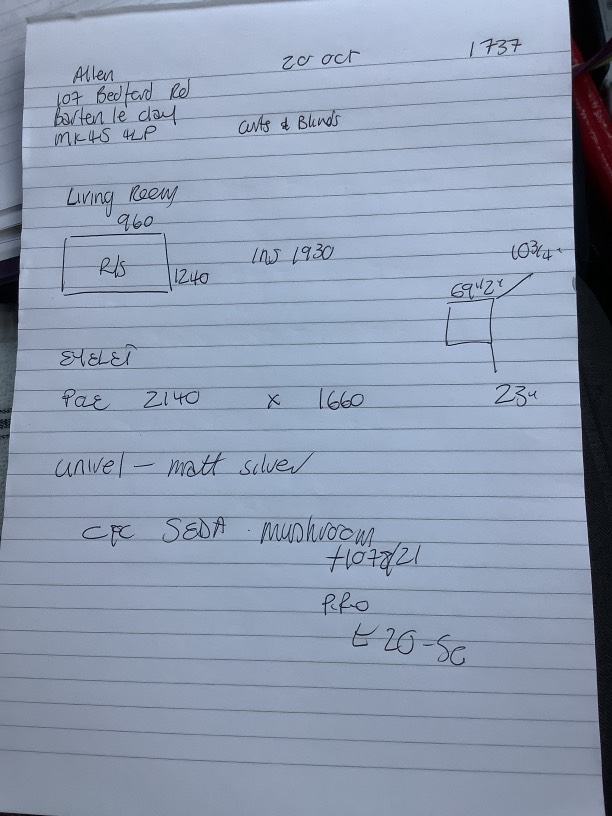 Allen 20 OCT 1737
107 Bedford Rd
Barton le clay
MK45 4LP Curts & Blinds
Living Room
960
R/S 1240 INS 1930
10 3/4"
69 1/2"
EYELET
POLE 2140 x 1660
23"
univel - matt silver
CFC SEDA mushroom
£20-50